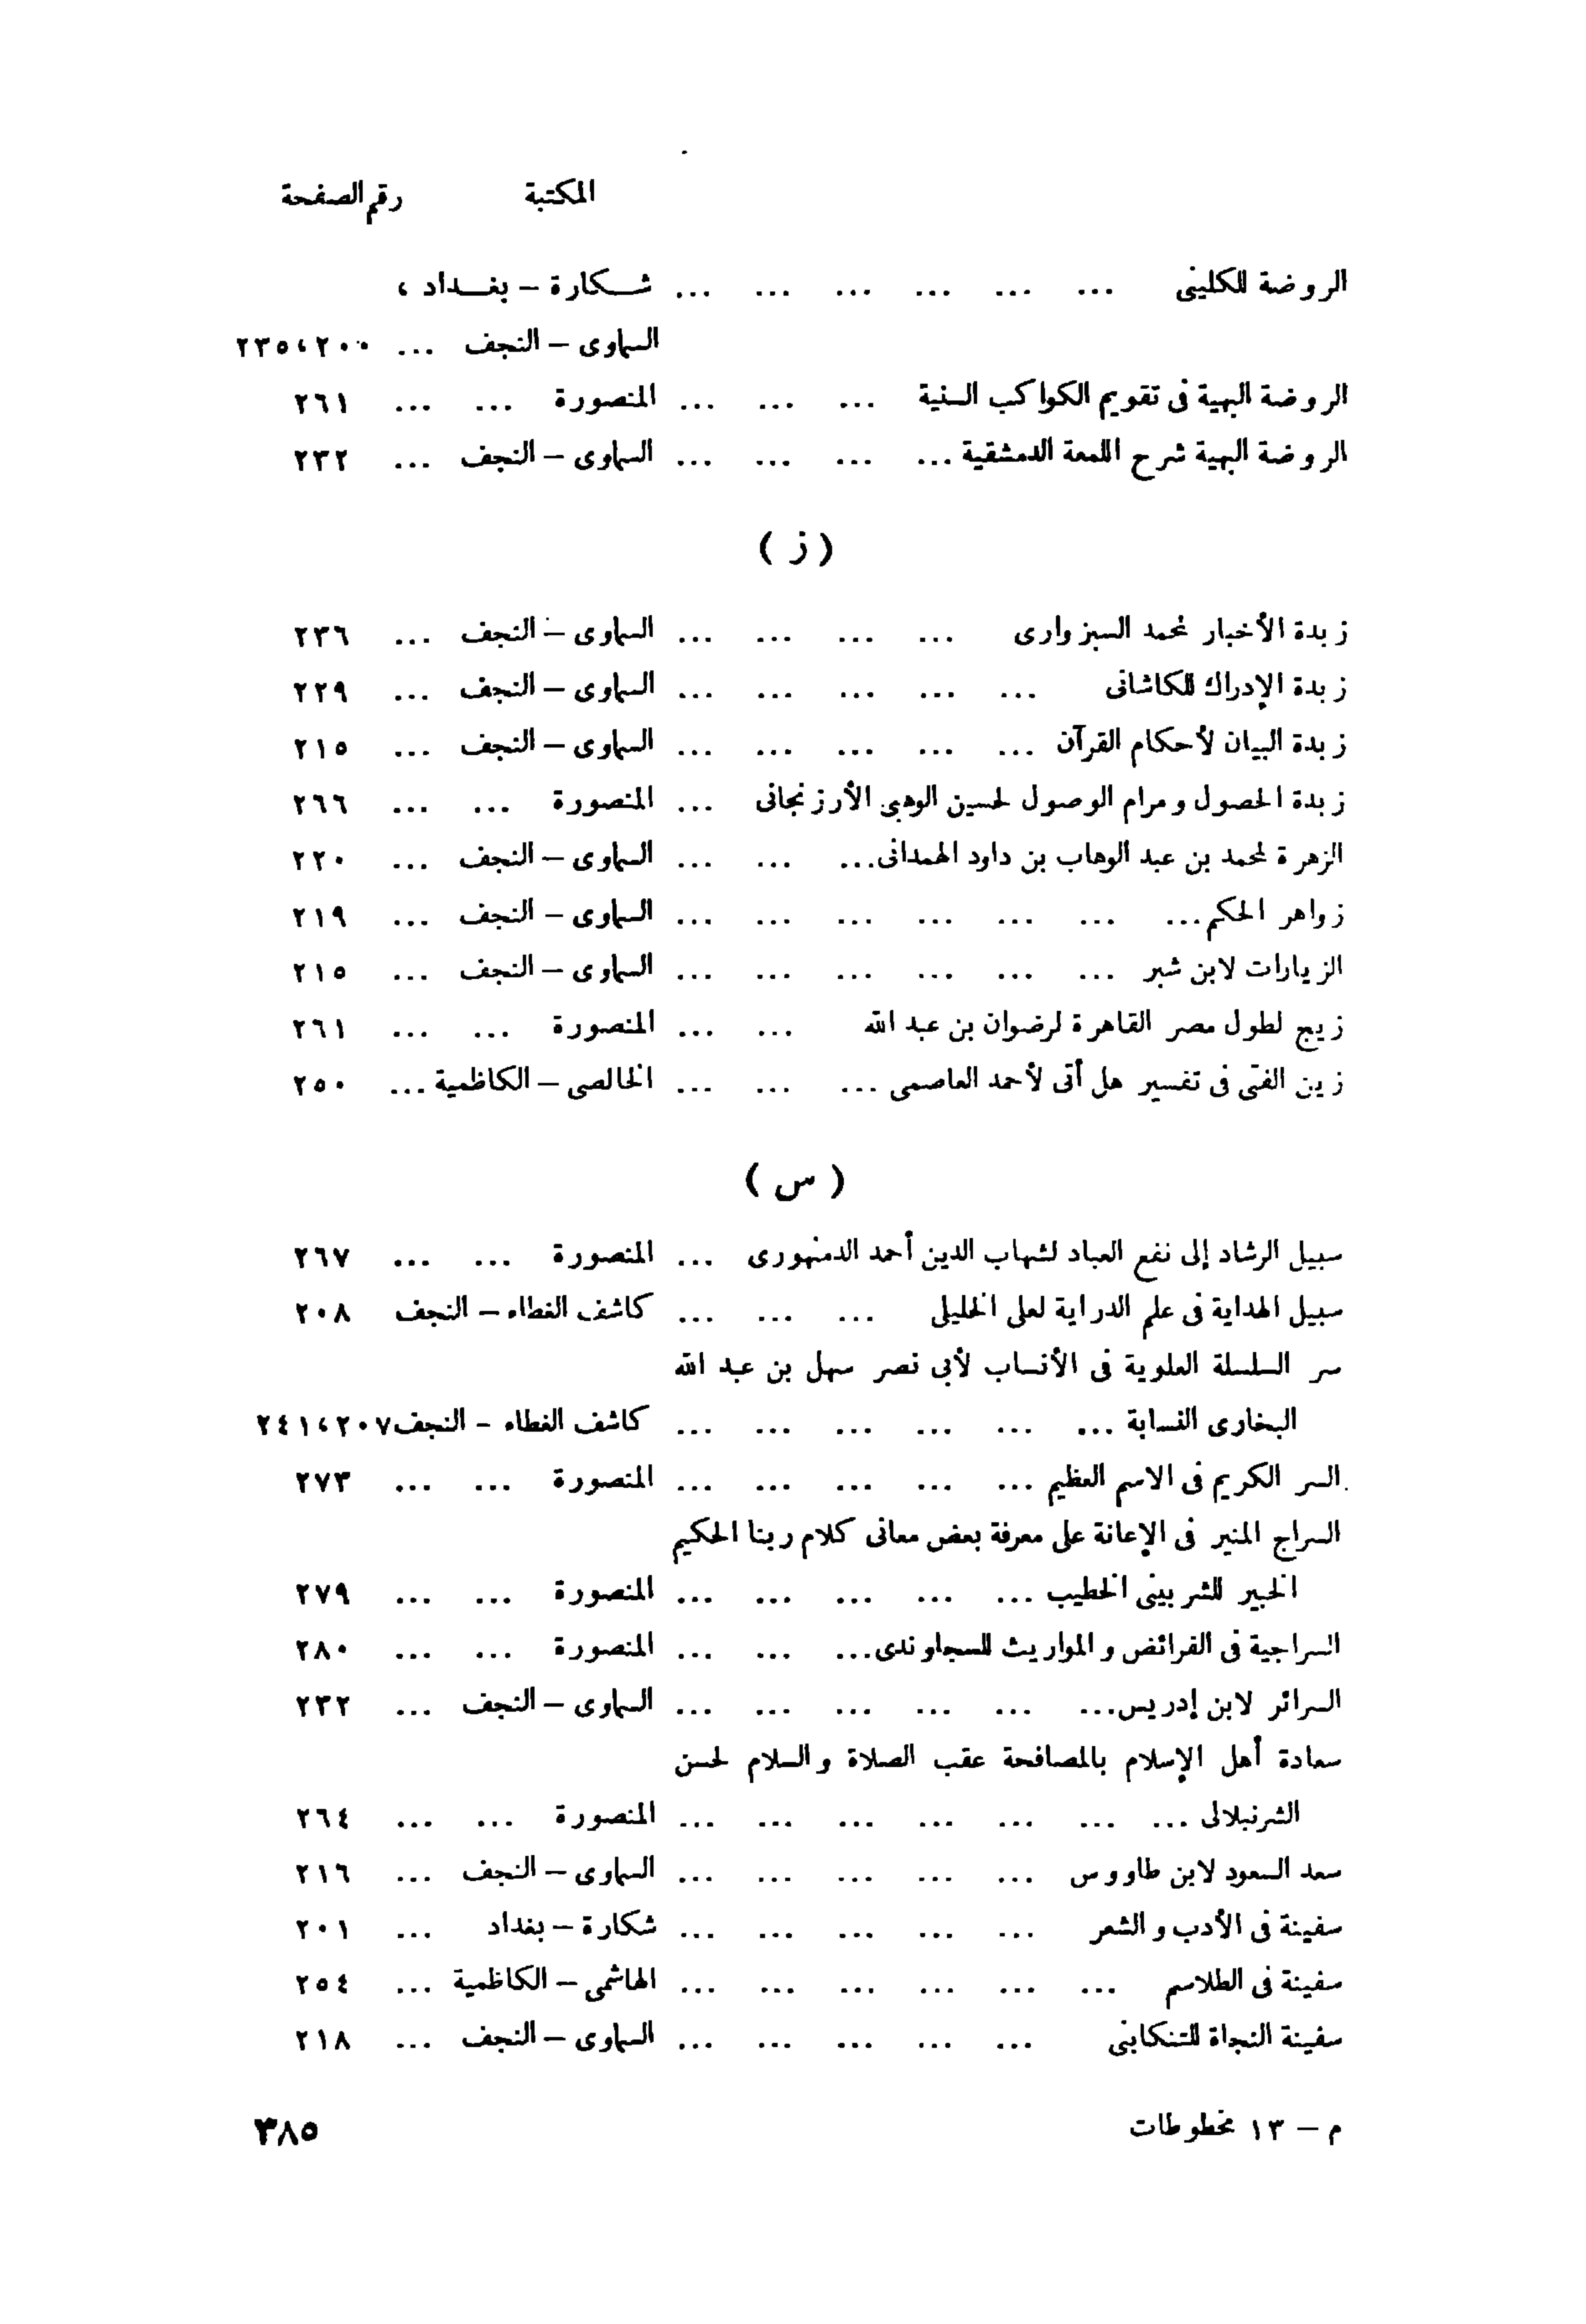 المكتبة رقم الصفحة
الروضة للكليني ... ... ... ... ... ... شكارة – بغداد ،
السماوى – النجف ... ٢٣٥،٢٠٠
الروضة البهية فى تقويم الكواكب السنية ... ... ... المنصورة ... ... ٢٦١
الروضة البهية شرح اللمعة الدمشقية ... ... ... ... السماوى – النجف ... ٢٣٢
( ز )
زبدة الأخبار لمحمد السبزوارى ... ... ... ... السماوى – النجف ... ٢٣٦
زبدة الإدراك للكاشانى ... ... ... ... ... السماوى – النجف ... ٢٢٩
زبدة البيان لأحكام القرآن ... ... ... ... ... السماوى – النجف ... ٢١٥
زبدة الحصول ومرام الوصول لحسين الوهبى الأرزنجانى ... المنصورة ... ... ٢٦٦
الزهرة لمحمد بن عبد الوهاب بن داود الهمدانى ... ... ... السماوى – النجف ... ٢٢٠
زواهر الحكم ... ... ... ... ... ... ... السماوى – النجف ... ٢١٩
الزيارات لابن شبر ... ... ... ... ... ... السماوى – النجف ... ٢١٥
زيج لطول مصر القاهرة لرضوان بن عبد الله ... ... المنصورة ... ... ٢٦١
زين الفتى فى تفسير هل أتى لأحمد العاصمى ... ... ... الخالصى – الكاظمية ... ٢٥٠
( س )
سبيل الرشاد إلى نفع العباد لشهاب الدين أحمد الدمنهورى ... المنصورة ... ... ٢٦٧
سبيل الهداية فى علم الدراية لعلى الخليلى ... ... ... كاشف الغطاء – النجف ٢٠٨
سر السلسلة العلوية فى الأنساب لأبى نصر سهل بن عبد الله
البخارى النسابة ... ... ... ... ... ... كاشف الغطاء – النجف ٢٤١،٢٠٧
السر الكريم فى الاسم العظيم ... ... ... ... ... المنصورة ... ... ٢٧٣
السراج المنير فى الإعانة على معرفة بعض معانى كلام ربنا الحكيم
الخبير للشربينى الخطيب ... ... ... ... ... المنصورة ... ... ٢٧٩
السراجية فى الفرائض والمواريث للسجاوندى ... ... ... المنصورة ... ... ٢٨٠
السرائر لابن إدريس ... ... ... ... ... ... السماوى – النجف ... ٢٣٢
سعادة أهل الإسلام بالمصافحة عقب الصلاة والسلام لحسن
الشرنبلالى ... ... ... ... ... ... ... المنصورة ... ... ٢٦٤
سعد السعود لابن طاووس ... ... ... ... ... السماوى – النجف ... ٢١٦
سفينة فى الأدب والشعر ... ... ... ... ... شكارة – بغداد ... ٢٠١
سفينة فى الطلاسم ... ... ... ... ... ... الهاشمى – الكاظمية ... ٢٥٤
سفينة النجاة للتنكابنى ... ... ... ... ... السماوى – النجف ... ٢١٨
م – ١٣ مخطوطات ٣٨٥